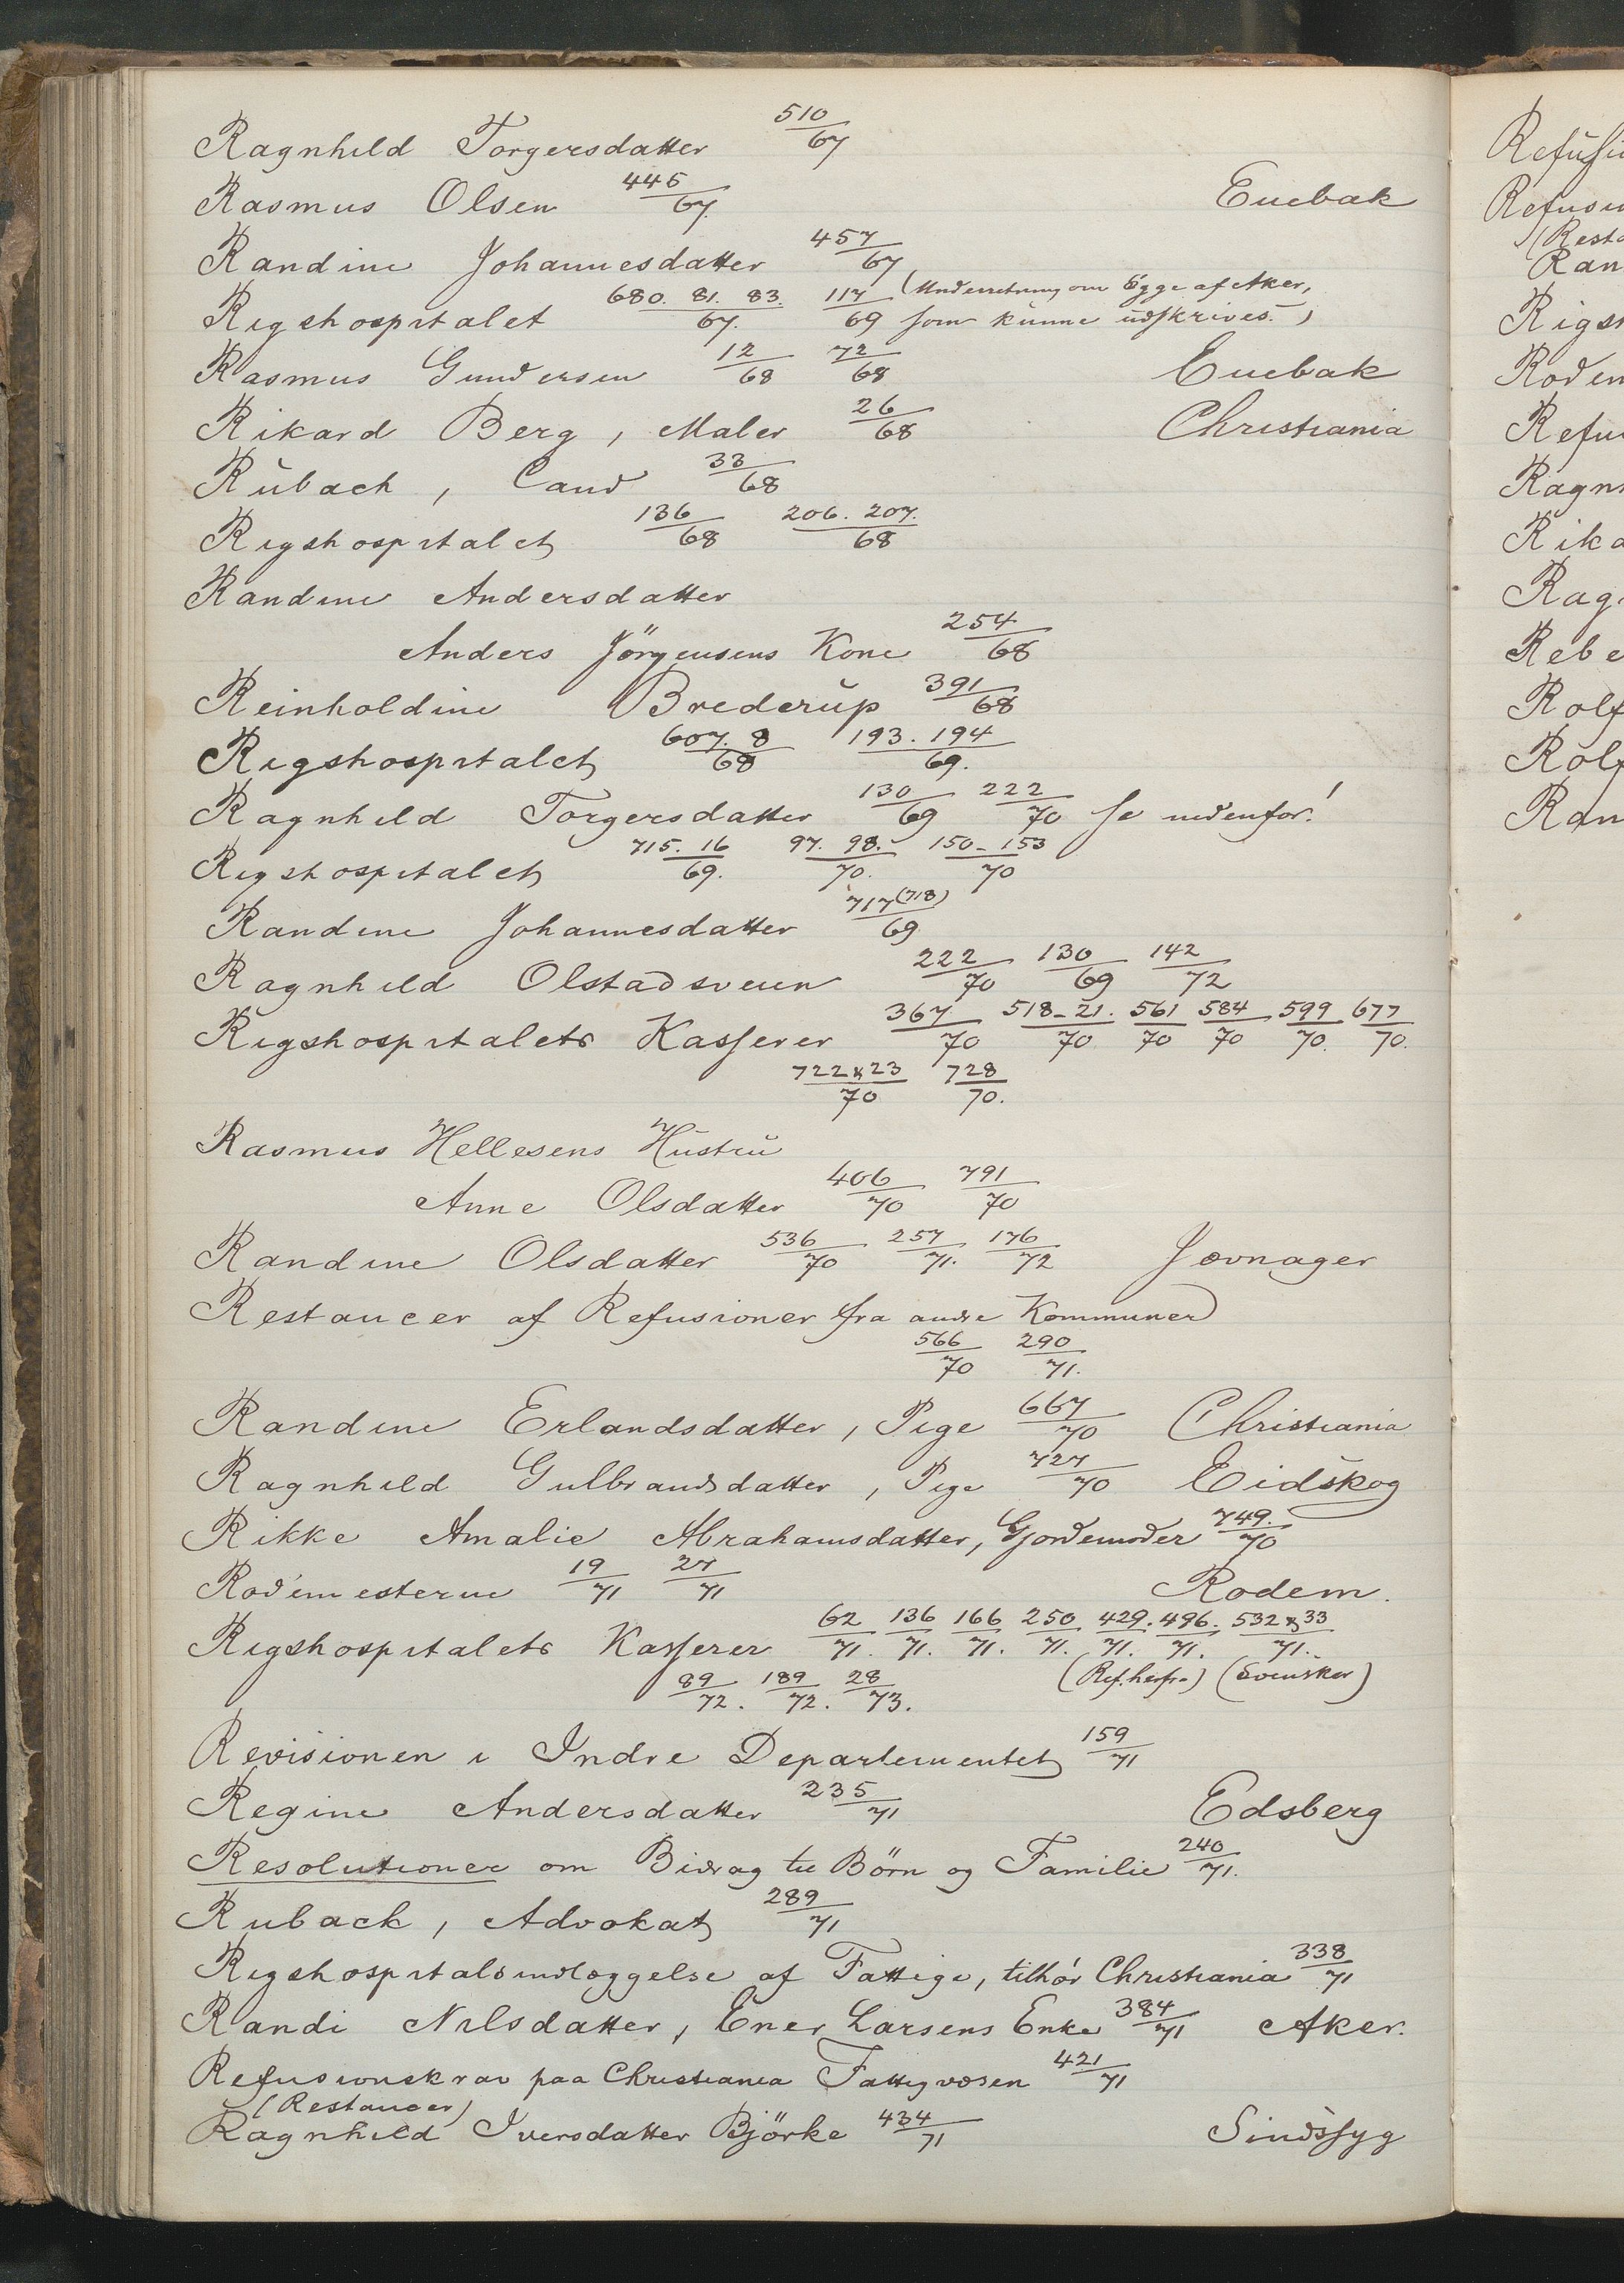 Ragnhild Torgersdatter 510/67
Rasmus Olsen 445/67. Enebak
Randine Johannesdatter 457/67
Rigshospitalet 680. 81. 83./67. 117/69 (Underretning om Sygge af Aker,
som kunne udskrives.)
Rasmus Gundersen 12/68 72/68 Enebak
Rikard Berg, Maler 26/68 Christiania
Rubach, Cand 33/68
Rigshospitalet 136/68 206. 207./68
Randine Andersdatter
Anders Jörgensens Kone 254/68
Reinholdine Brederup 391/68
Rigshospitalet 607. 8/68 193. 194/69.
Ragnhild Torgersdatter 130/69 222/70 se nedenfor!
Rigshospitalet 715. 16/69. 97. 98./70. 150-153/70
Randine Johannesdatter 717(718)/69
Ragnhild Olstadsveen 222/70 130/69 142/72
Rigshospitalets Kasserer 367/70 518-21./70 561/70 584/70 599/70. 677/70.
722 & 23/70 728/70.
Rasmus Hellesens Hustru
Anne Olsdatter 406/70 791/70
Randine Olsdatter 536/70 257/71. 176/72 Jævnager
Restancer af Refusioner fra andre Kommuner
566/70 290/71.
Randine Erlandsdatter, Pige 667/70 Christiania
Ragnhild Gulbrandsdatter, Pige 727/70 Eidskog
Rikke Amalie Abrahamsdatter, Gjordemoder 749./70
Rodemesterne 19/71 27/71 Rodem.
Rigshospitalets Kasserer 62/71. 136/71. 166/71. 250/71. 429./71. 496./71. 532 & 33/71.
89/72. 189/72. 28/73. (Ref. herfra) (Svensker)
Revisionen i Indre Departementet 159/71
Regine Andersdatter 235/71 Edsberg
Resolutioner om Bidrag til Börn og Familie 240/71.
Ruback, Advokat 289/71
Rigshospitalsindlæggelse af Fattige, tilhör Christiania 338/71
Randi Nilsdatter, Ener Larsens Enke 384/71 Aker.
Refusionskrav paa Christiania Fattigvæsen 421/71
(Restancer)
Ragnhild Iversdatter Björke 434/71 Sindssyg
Refusi
Refusi
(Resta
Ran
Rigsh
Rodem
Refu
Ragn
Rika
Rag
Rebe
Rolf
Rolf
Ran